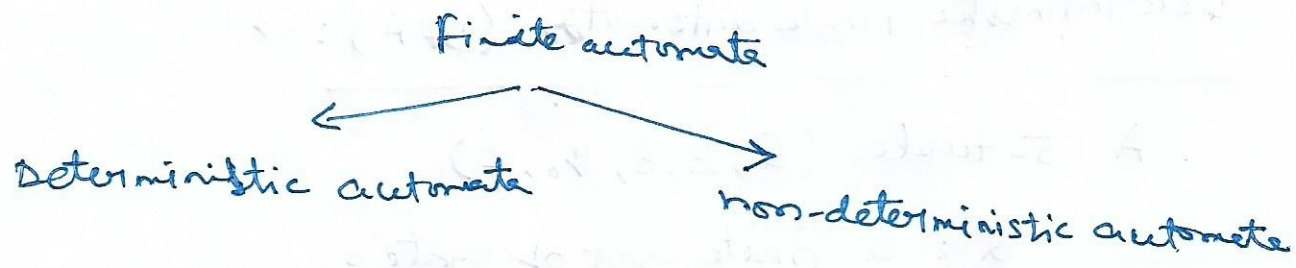 Finite automata
Deterministic automata
non-deterministic automata